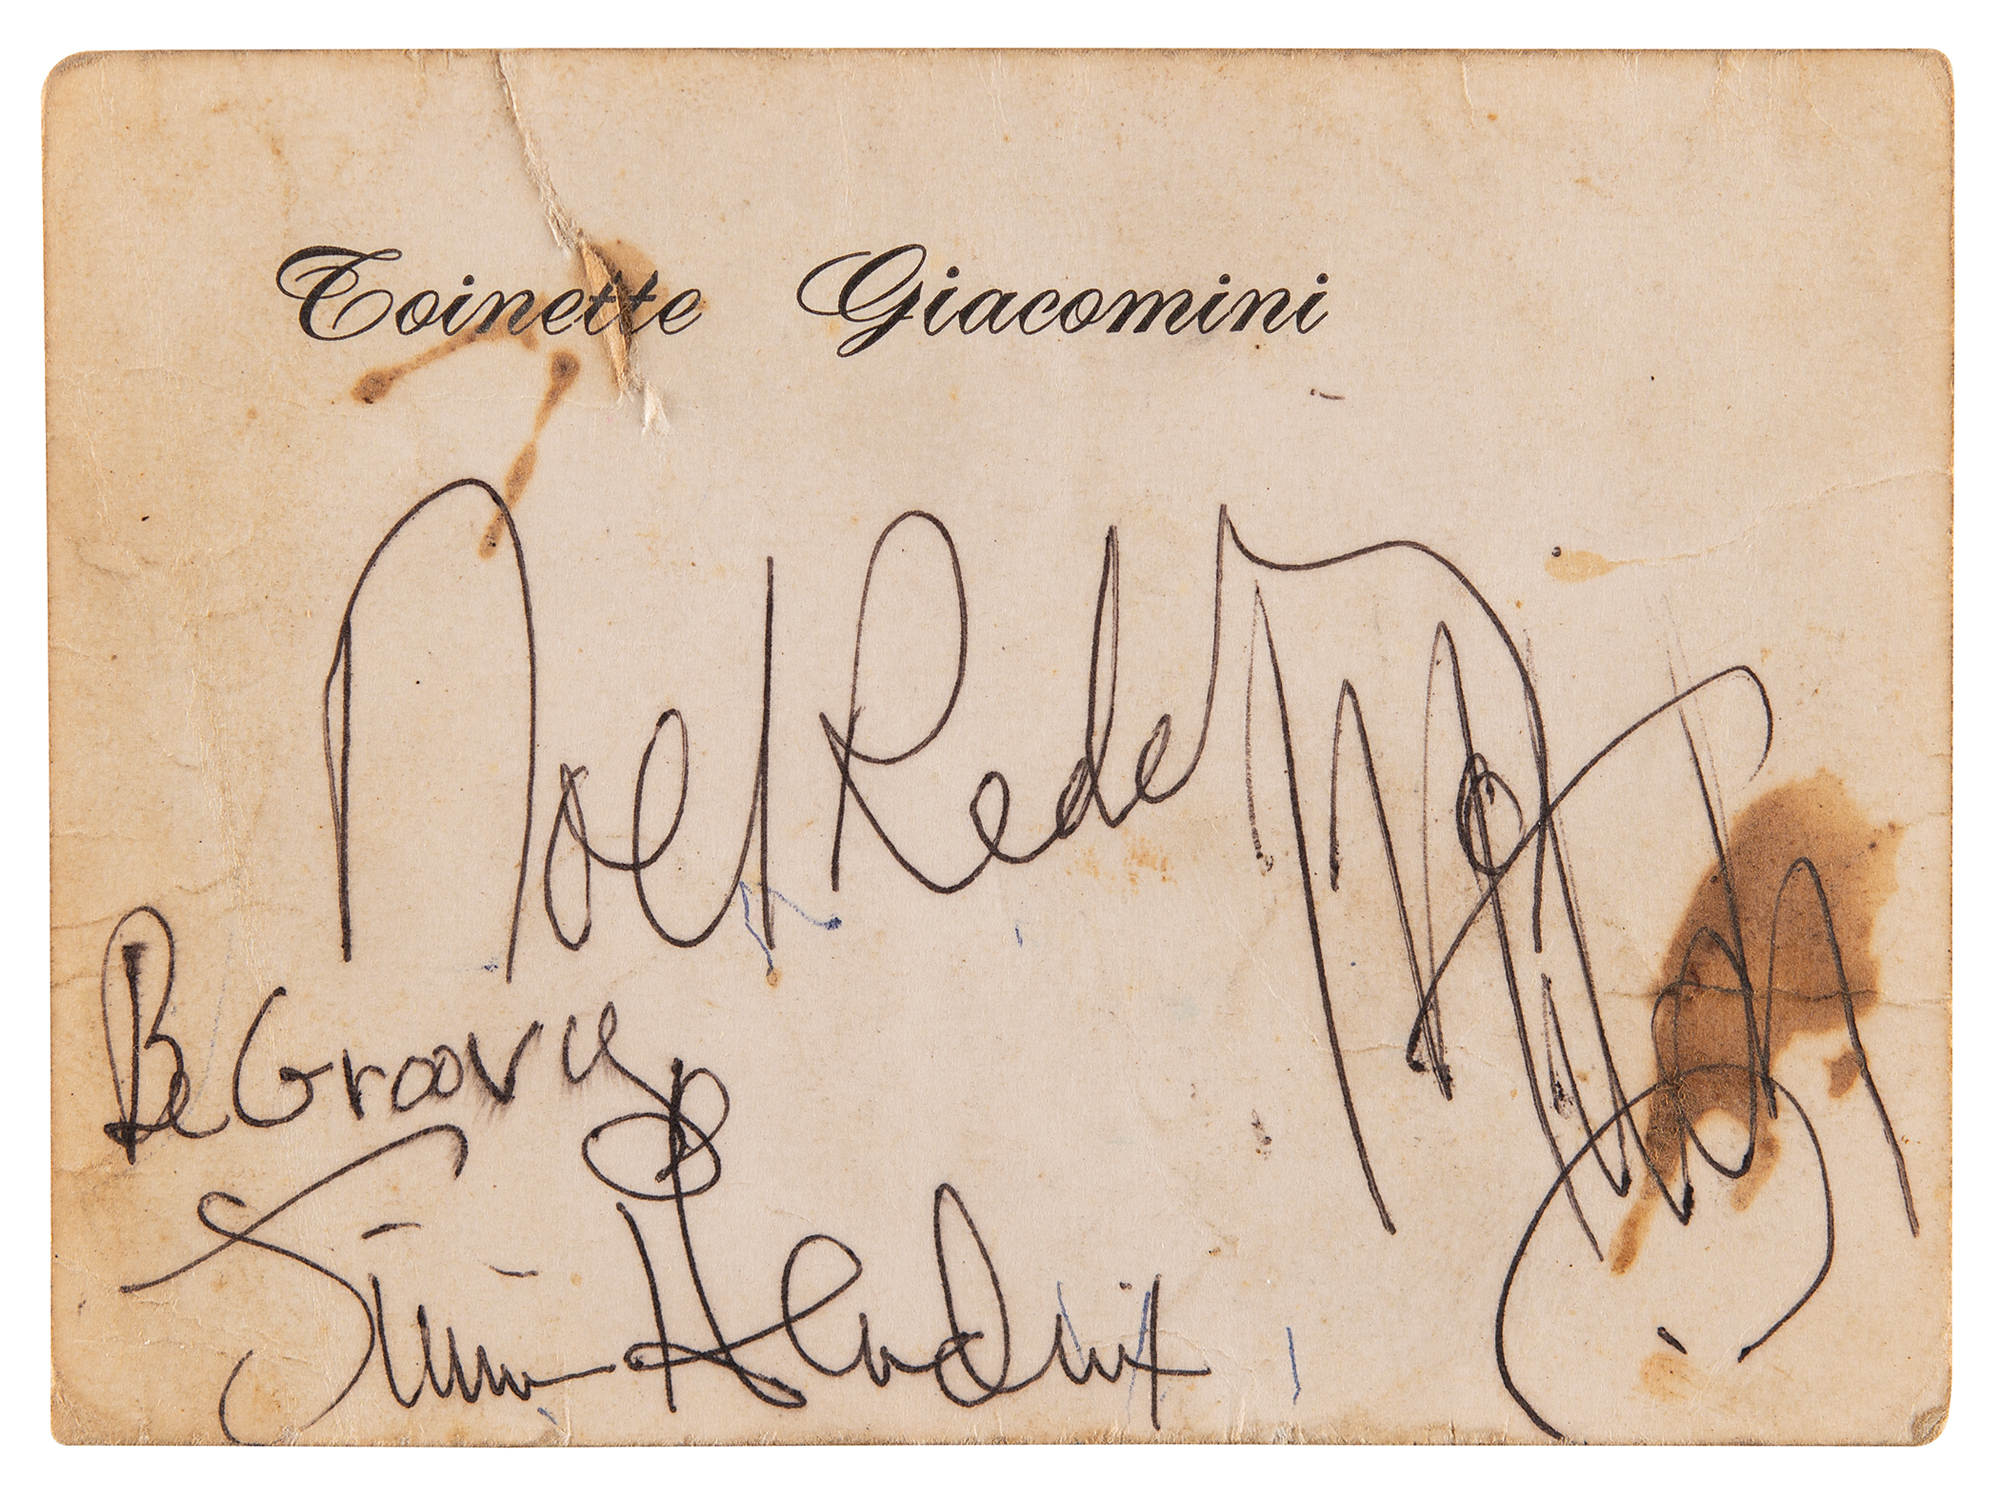 Toinette Giacomini
Noel Redding
Be Groovy
Jimi Hendrix